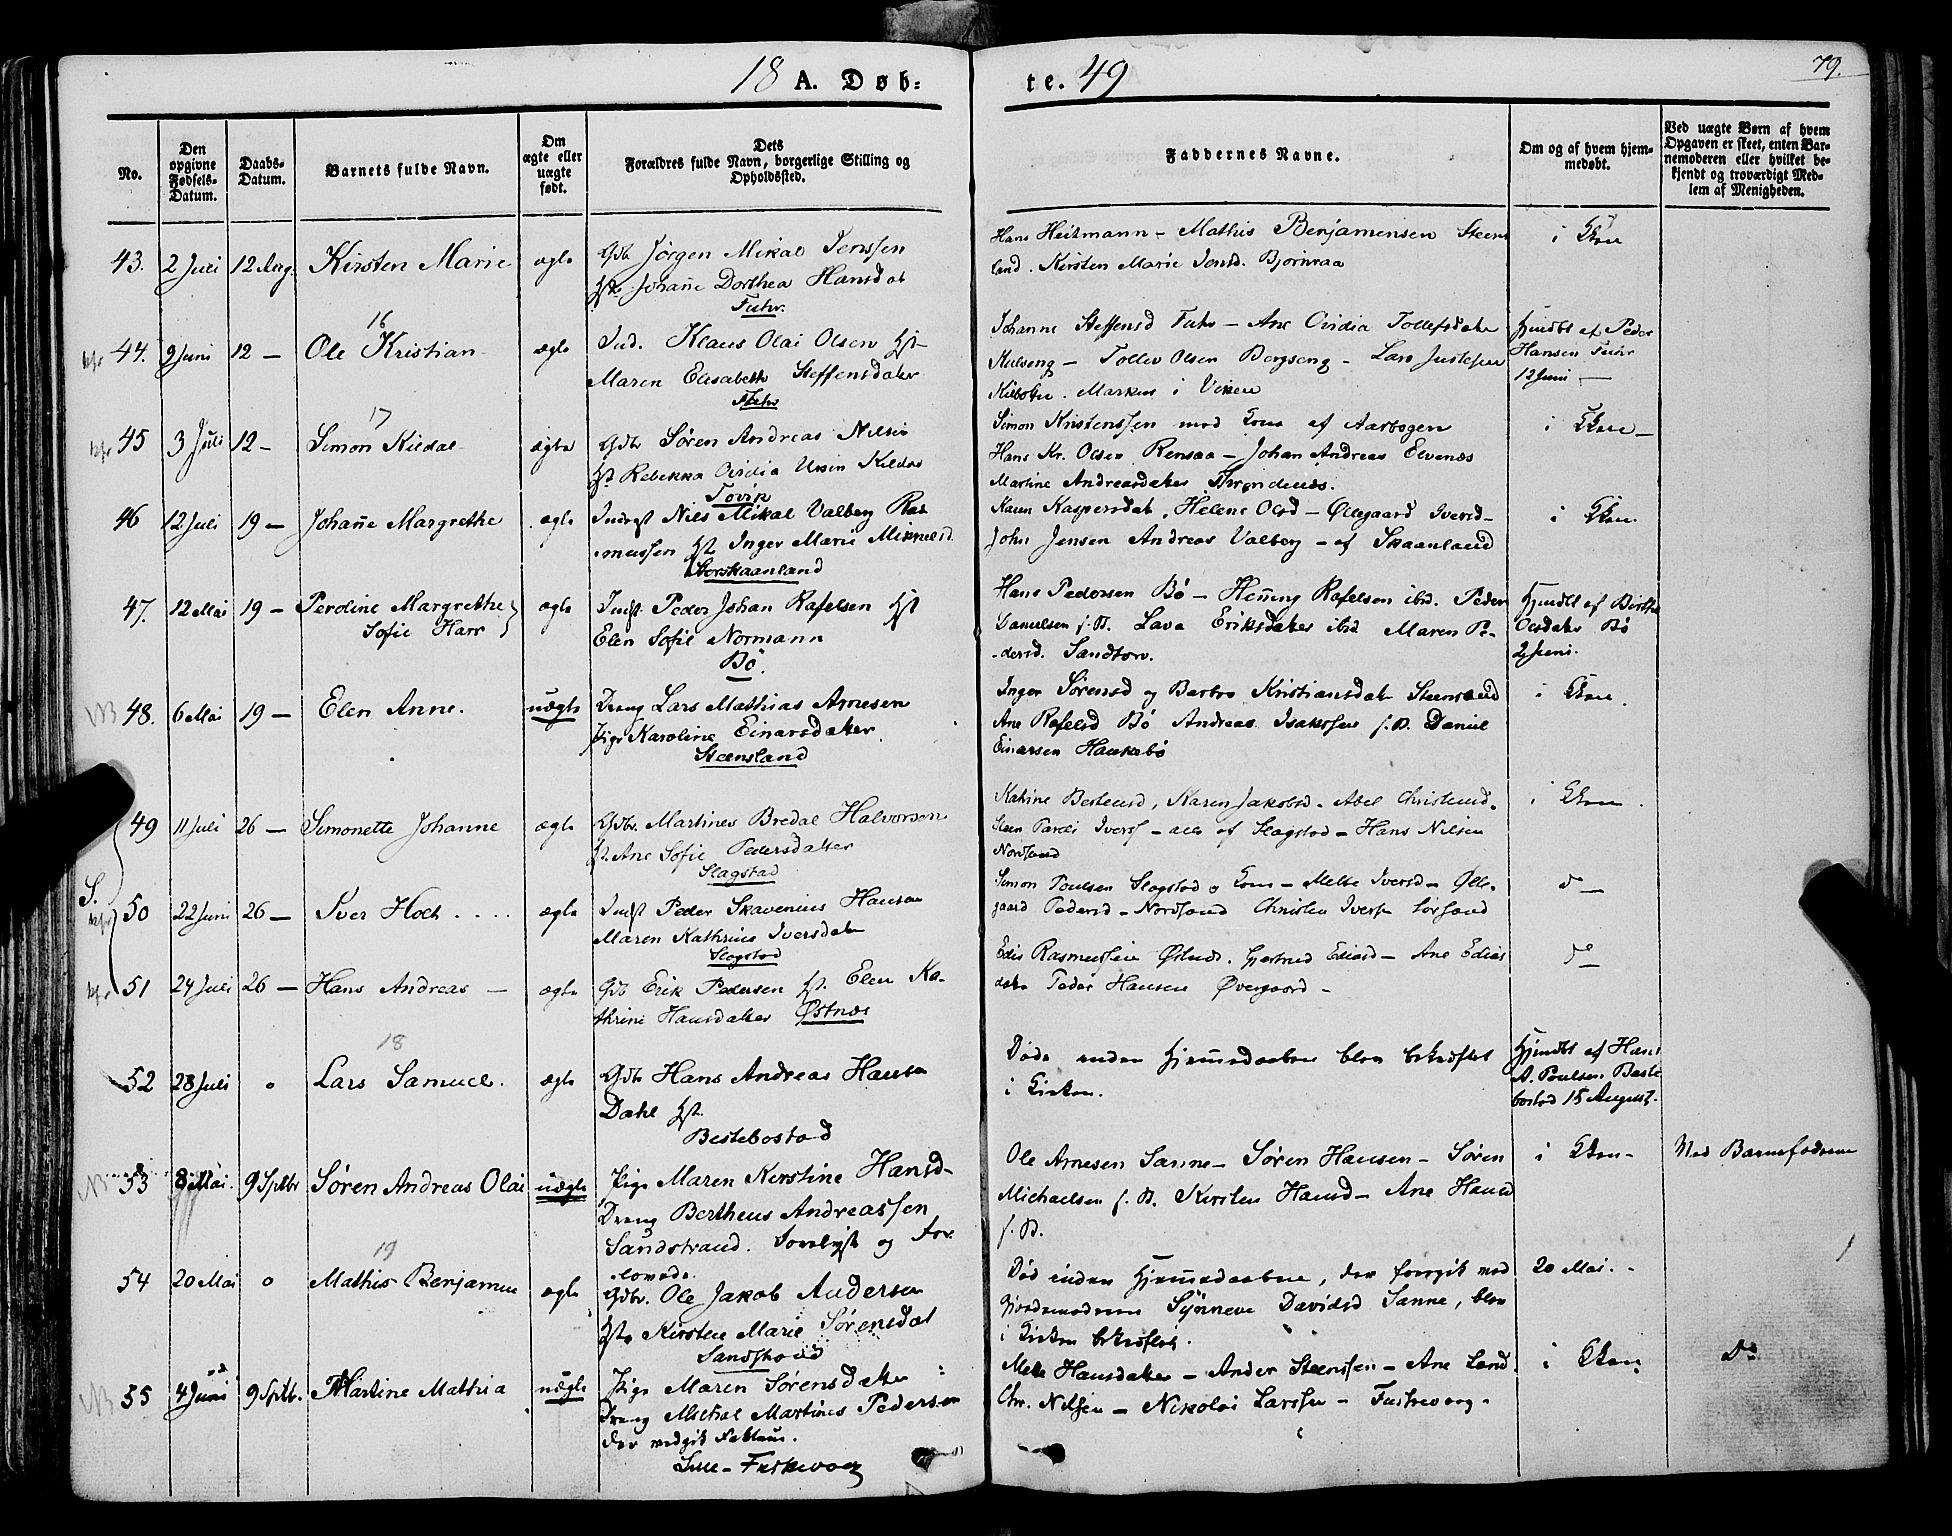 18 A. Døb-
te. 49
79.
No.
Den opgivne Fødsels-Datum.
Daabs-Datum.
Barnets fulde Navn.
Om ægte eller uægte født.
Dets
Forældres fulde Navn, borgerlige Stilling og
Opholdssted.
Faddernes Navne.
Om og af hvem hjem-
medøbt.
Ved uægte Børn af hvem
Opgaven er skeet, enten Bar-
nemoderen eller hvilket be-
kjendt og troværdigt Med-
lem af Menigheden.
43. 2 Juli 12 Aug. Kirsten Marie ægte Gdbr Jørgen Mikal Jenssen
Johañe Dorthea Hansdat
Fuhr.
Hans Heitmann - Mathis Benjamensen Steens
land. Kirsten Marie Jensd. Bjornraa
i
16
44. 9 Juni 12 - Ole Kristian ægte Ind. Klaus Olai Olsen Hst
Maren Elisabeth Steffensdatter
Fuhr
Johanne Steffensd Fuhr - Ane Ovidia Tollefsdatter
- Tollev Olsen Bergseng - Lars Justesen
Markus i Viken
Hjmdbt af Peder
Hansen Fuhr
12 Juni -
17
45 3 Juli 12 - Simon Kildal ægte Gdbr Søren Andreas Nilsen
Hst Rebekka Ovidia Ursin Kildal
Tovik
Simon Kristenssen med Kone af Aarbogen
Hans Kr. Olsen Rensaa - Johan Andreas Elvenæs
Martine Andreasdatter Throndenæs.
i
46 12 Juli 19 - Johañe Margrethe ægte Indrst Nils Mikal Valberg Ras
mussen Hst Inger Marie Mikkelsd.
Storskaanland
Karen Kaspersdat, Helene Olsd - Øllegaard Iversd -
John Jensen Andreas Valberg - af Skaanland
i
47. 12 Mai 19 - Perdine Margrethe
Sofie Harr
ægte Indst Peder Johan Rafelsen Hst
Elen Sofie Normann
Bø.
Hans Pedersen Bø - Heñing Rafelsen ibid. Peder
Danielsen s. St. Lava Eriksdatter ibid Maren Pe-
dersd. Sandtorv.
Hjmdbt af Birthe
Olsdatter Bø
2 Juni.
NB 48. 6 Mai 19 - Elen Anne. uægte Dreng Lars Mathias Arnesen
Pige Karoline Einarsdatter
Steensland
Inger Sørensd og Barbro Kristiansdat Steensland
Ane Rafelsd Bø Andreas Isakssen s. St. Daniel
Einarsen Haukebø
i
49 11 Juli 26 - Simonette Johanne ægte Gdbr. Martines Bredal Halvorsen
Hst. Ane Sofie Pedersdatter
Slagstad
Karen Jakobsd. Abel
Iverss - alle af Slagstad - Hans Nilsen
Nordsand
i
S.
50 22 Juni 26 - Iver Holt .... ægte Indst Peder Skavenius Hansen
Maren Kathrine Iversdatter
Slagstad
Simon Poulsen Slagstad og Kone - Mette Iversd - Ølle-
gaard Pedersd - Nordsand Christen Iverss Sørsand
do -
51 24 Juli 26 - Hans Andreas - ægte Gdb Erik Pedersen Hst. Elen Ka-
thrine Hansdatter Østnæs
Edis Rasmussen Østnæs. Gjertrud Ediasd - Ane Edias
datter Peder Hansen Øvergaard -
do -
18
52 28 Juli o Lars Samuel. ægte Gdbr Hans Andreas Hansen
Dahl Hst.
Bestebostad
Døde inden Hjemedaaben blev bekræftet
i Kirken.
Hjmdbt af Hans
A. Poulsen Beste
bostad 15 August.
NB 53 8 Mai. 9 Sptbr Søren Andreas Olai uægte Pige Maren Kirstine Hansd-
Dreng Bertheus Andreassen
Sandstrand. Trolovede og for
lovede.
Ole Arnesen Sanne - Søren Hansen - Søren
Michaelsen s. St. Kirsten Hansd - Ane Hansd
s. St.
i
Med Barnefaderen
19
54 20 Mai o Mathis Benjamin ægte Gdbr. Ole Jakob Andersen
Kirsten Marie Sørensdat
Død inden Hjemedaaben, der foregik ved
Gjordemoderen Synneve Davidsd Sanne, blev
i Kirken bekræftet.
20 Mai.
NB 55 4 Juni 9 Sptb. Martine Mathia uægte Pige Maren Sørensdatter
Dreng Michal Martines Pedersen
der vedgik Faktum.
Lille-Fuskevaag
Mette Hansdatter - Ander Steenssen - Ane Lend.
Chr. Nilsen - Nikolai Larssen - Fuskevaag.
i
Do